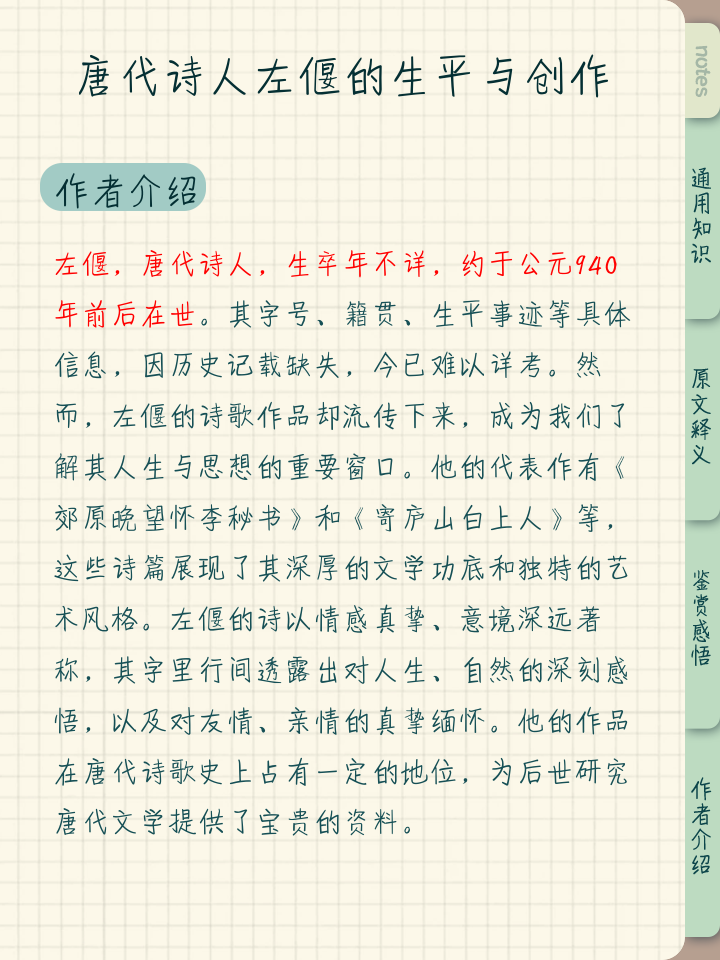 唐代诗人左偃的生平与创作
作者介绍
左偃，唐代诗人，生卒年不详，约于公元940
年前后在世。其字号、籍贯、生平事迹等具体
信息，因历史记载缺失，今已难以详考。然
而，左偃的诗歌作品却流传下来，成为我们了
解其人生与思想的重要窗口。他的代表作有《
郊原晚望怀李秘书》和《寄庐山白上人》等，
这些诗篇展现了其深厚的文学功底和独特的艺
术风格。左偃的诗以情感真挚、意境深远著
称，其字里行间透露出对人生、自然的深刻感
悟，以及对友情、亲情的真挚缅怀。他的作品
在唐代诗歌史上占有一定的地位，为后世研究
唐代文学提供了宝贵的资料。
notes
通用知识
原文释义
鉴赏感悟
作者介绍